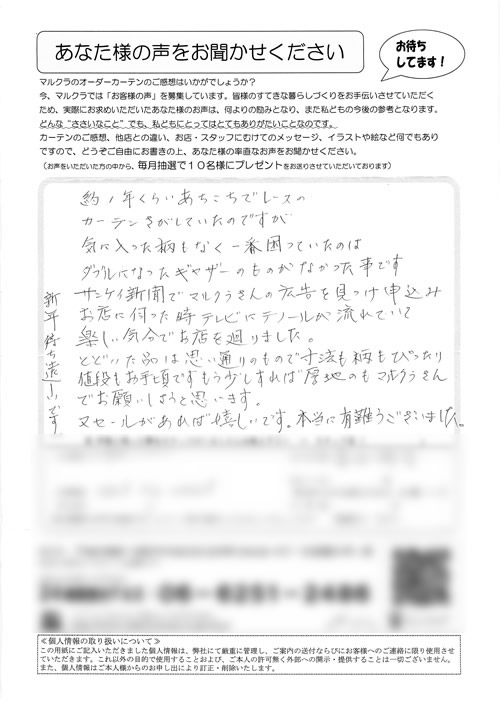 あなた様の声をお聞かせください
お待ち
してます！
マルクラのオーダーカーテンのご感想はいかがでしょうか？
今、マルクラでは「お客様の声」を募集しています。皆様のすてきな暮らしづくりをお手伝いさせていただく
ため、実際にお求めいただいたあなた様のお声は、何よりの励みとなり、また私どもの今後の参考となります。
どんな“ささいなこと”でも、私どもにとってはとてもありがたいことなのです。
カーテンのご感想、他店との違い、お店・スタッフにむけてのメッセージ、イラストや絵など何でもあり
ますので、どうぞご自由にお書きの上、あなた様の率直なお声をお聞かせください。
（お声をいただいた方の中から、毎月抽選で１０名様にプレゼントをお送りさせていただいております）
約１年くらいあちこちでレースの
カーテンさがしていたのですが
気に入った柄もなく一番困っていたのは
ダブルになったギャザーのものがなかった事です
サンケイ新聞でマルクラさんの広告を見つけ申込み
お店に行った時テレビにテノールが流れていて
楽しい気分でお店を廻りました。
とどいた品は思い通りのもので寸法も柄もぴったり
値段もお手頃ですもう少しすれば厚地のもマルクラさん
でお願いしようと思います。
又セールがあれば嬉しいです。本当に有難うございました。
新年待ち遠しいです
06-6251-2486
≪個人情報の取り扱いについて≫
この用紙にご記入いただきました個人情報は、弊社にて厳重に管理し、ご案内の送付ならびにお客様へのご連絡に限り使用させ
ていただきます。これ以外の目的で使用することおよび、ご本人の許可無く外部への開示・提供することは一切ございません。
また、個人情報はご本人様からのお申し出により訂正・削除いたします。